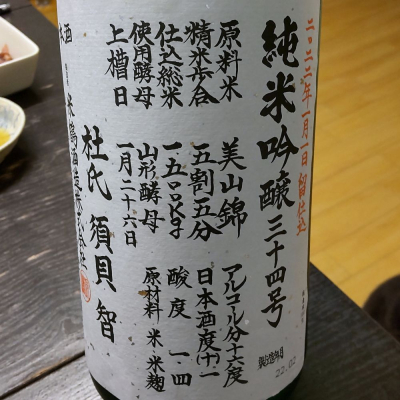 二・二二年一月一日留仕込
純米吟醸三十四号
原料米 美山錦
精米歩合 五割五分
仕込総米 一五〇〇kg
使用酵母 山形酵母
上槽日 一月二十六日
アルコール分十六度
日本酒度(十)一
酸度 一・四
原材料 米 米麹
杜氏 須貝 智
米鶴酒造株式会社
酒
製造年月
22.02